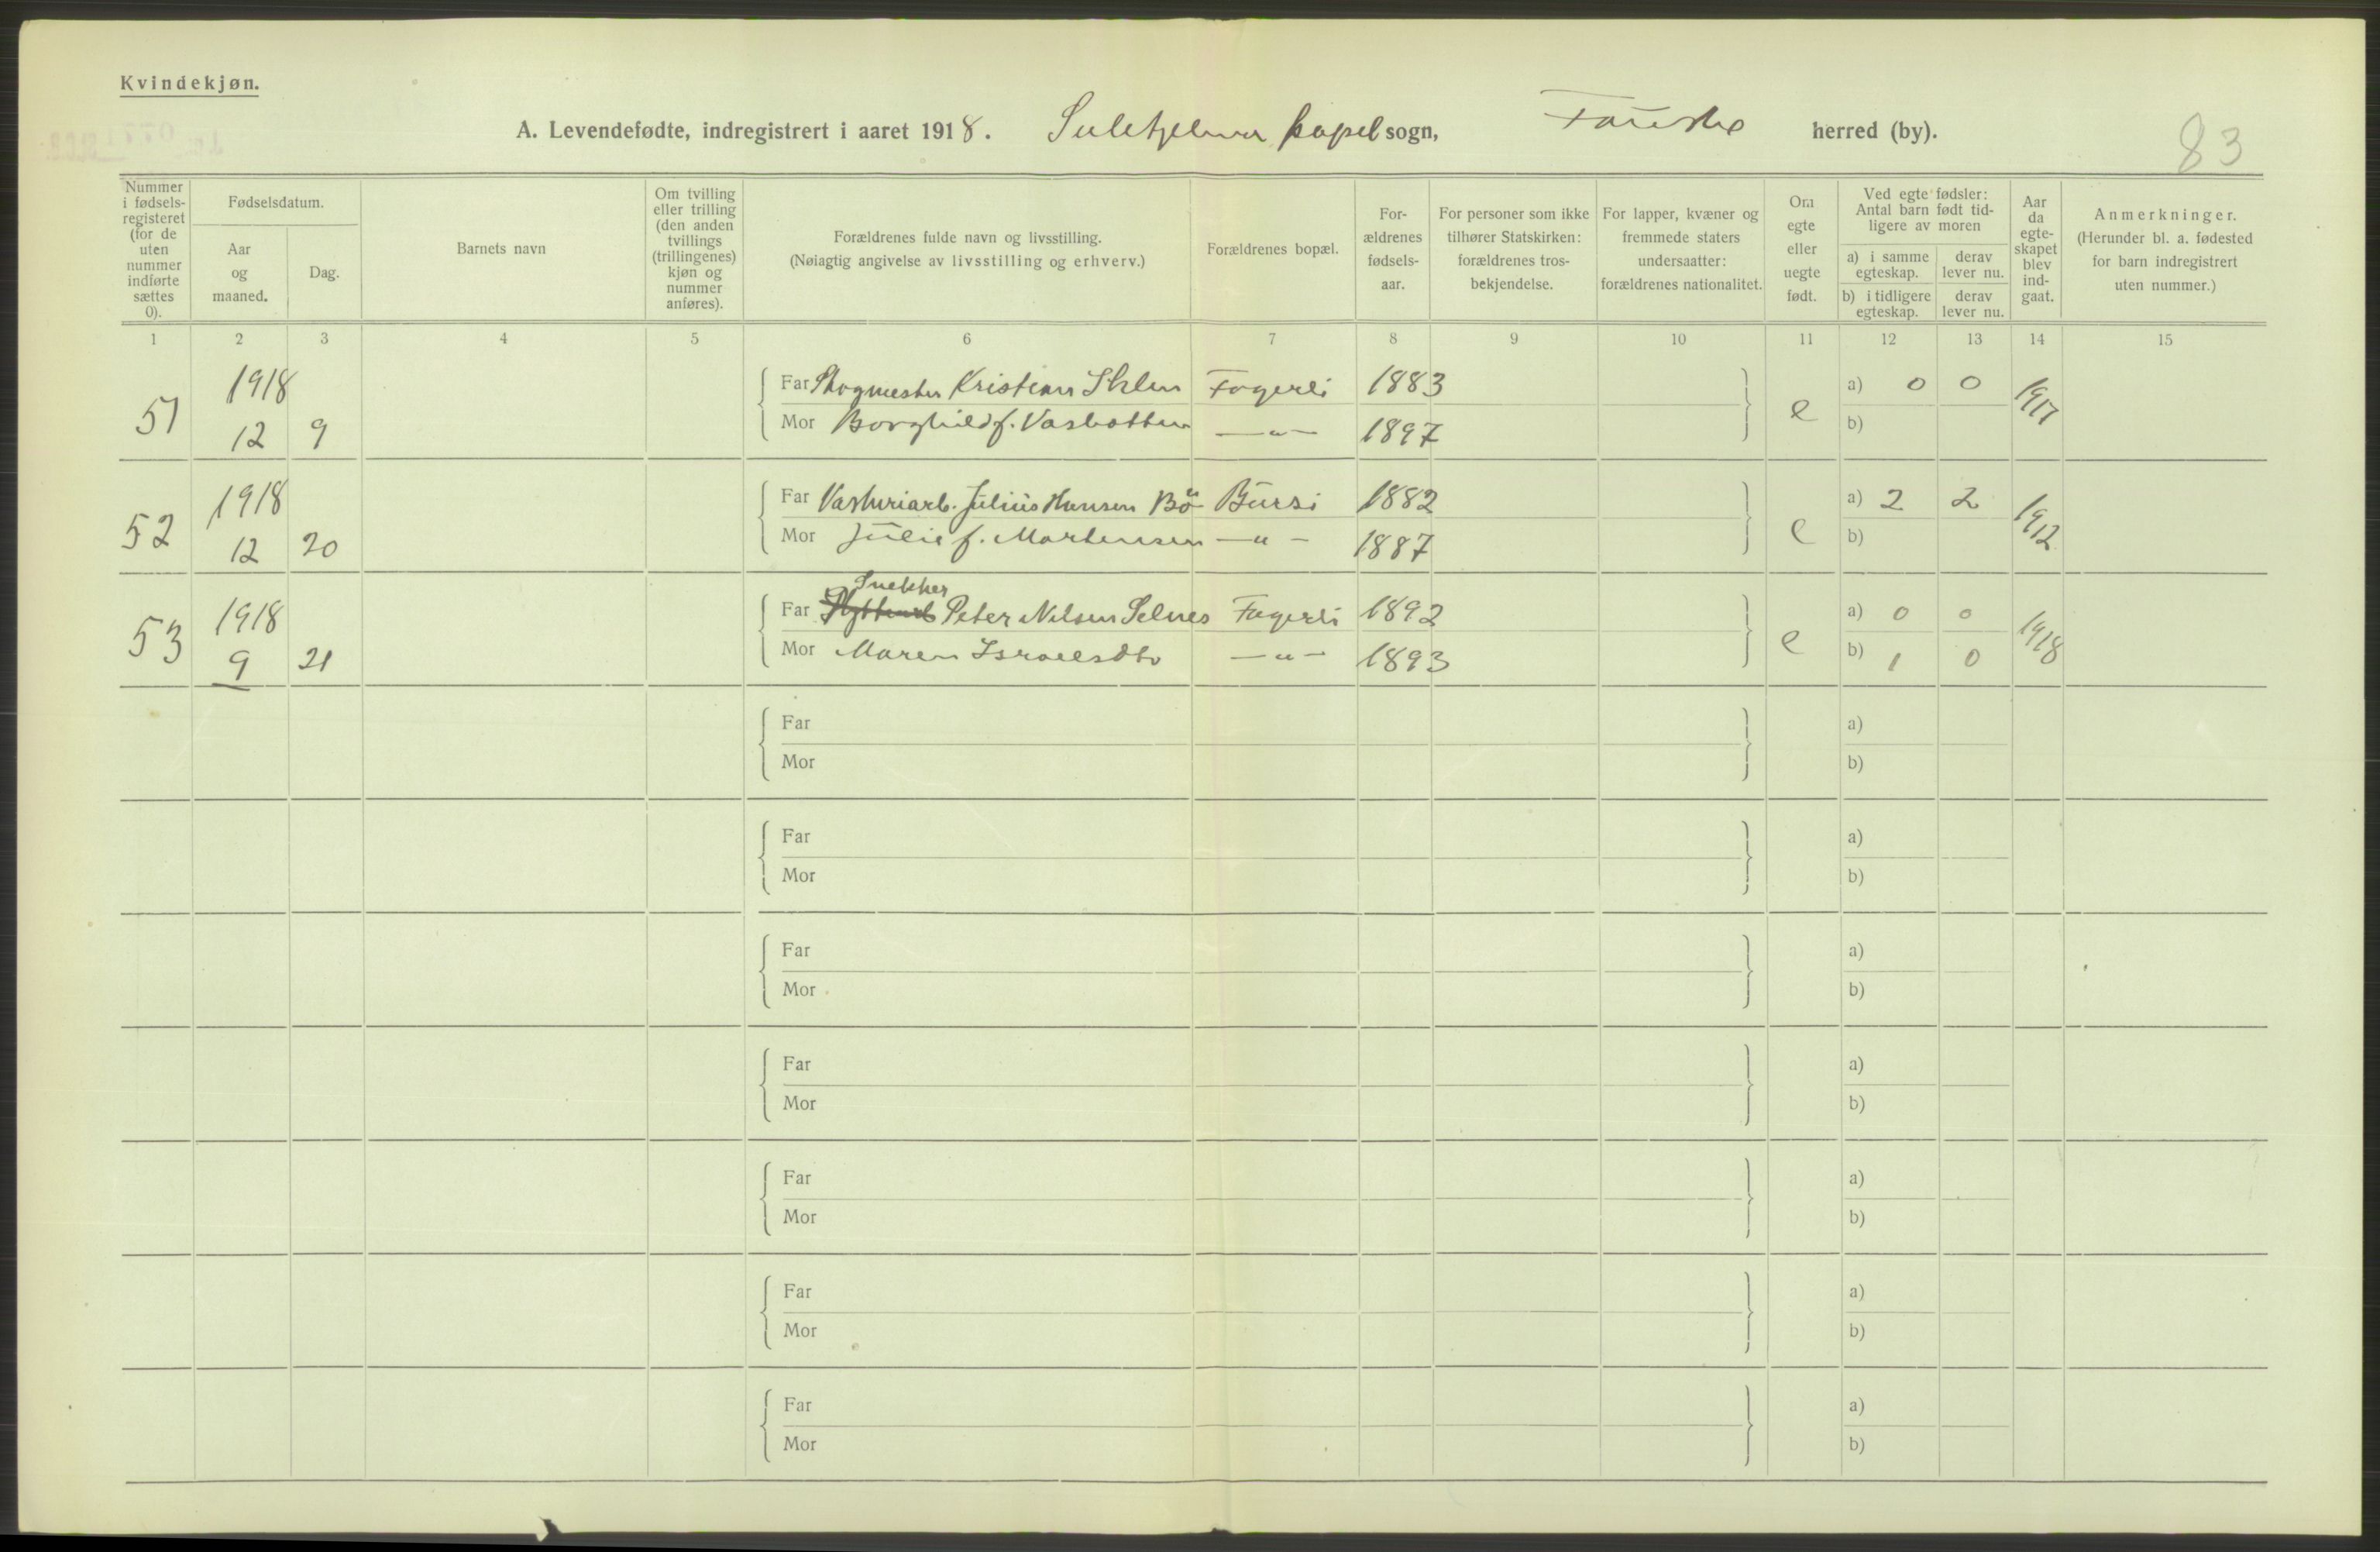 Kvindekjøn.
A. Levendefødte, indregistrert i aaret 1918. Sulitjelma kapel sogn, Fauske herred (by).
83
Nummer i fødsels-registeret (for de uten nummer indførte sættes 0).
Fødselsdatum.
Aar og maaned.
Dag.
Barnets navn
Om tvilling eller trilling (den anden tvillings (trillingenes) kjøn og nummer anføres).
Forældrenes fulde navn og livsstilling.
(Nøiagtig angivelse av livsstilling og erhverv.)
Forældrenes bopæl.
For-ældrenes fødsels-aar.
For personer som ikke tilhører Statskirken: forældrenes tros-bekjendelse.
For lapper, kvæner og fremmede staters undersaatter: forældrenes nationalitet.
Om egte eller uegte født.
Ved egte fødsler: Antal barn født tid-ligere av moren
a) i samme egteskap.
derav lever nu.
b) i tidligere egteskap.
derav lever nu.
Aar da egte-skapet blev ind-gaat.
Anmerkninger.
(Herunder bl. a. fødested for barn indregistrert uten nummer.)
1 2 3 4 5 6 7 8 9 10 11 12 13 14 15
51 1918 12 9
Far Kristian Fagerli 1883 e a) 0 0 1917
Mor Borghild f. Vasbotten —"— 1897 b)
52 1918 12 20
Far Julius Hansen Bø Bursi 1882 e a) 2 2 1912
Mor Julie f. Martensen —"— 1887 b)
53 1918 9 21
Snekker
Far Peter Nilsen Selnes Fagerli 1892 e a) 0 0 1918
Mor Maren Israelsdtr —"— 1893 b) 1 0
Far a)
Mor b)
Far a)
Mor b)
Far a)
Mor b)
Far a)
Mor b)
Far a)
Mor b)
Far a)
Mor b)
Far a)
Mor b)